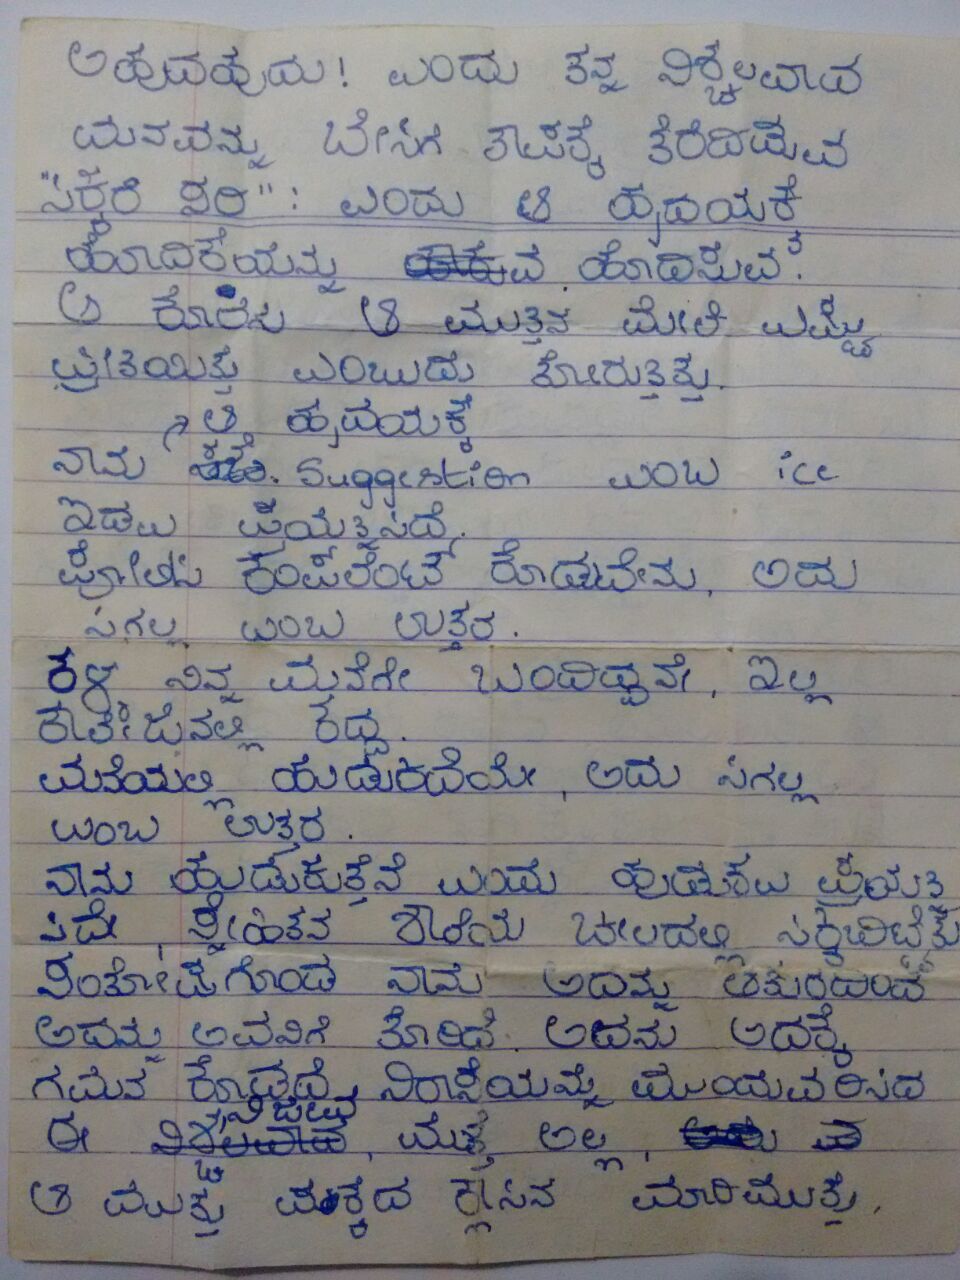 ಅಹುದಹುದು! ಎಂದು ತನ್ನ ನಿಶ್ಚಲವಾದ
ಮನವನ್ನು ಬೇಸಿಗೆ ತಾಪಕ್ಕೆ ತೆರೆದಿಡುವ
"ಸಕ್ಕರೆ ಸರಿ": ಎಂದು ಆ ಹೃದಯಕ್ಕೆ
ಹೊದಿಕೆಯನ್ನು ಹೊದಿಸುವ.
ಆ ಕೆಲಸ ಆ ಮುತ್ತಿನ ಮೇಲೆ ಎಷ್ಟು
ಪ್ರೀತಿಯಿತ್ತು ಎಂಬುದು ತೋರುತ್ತಿತ್ತು.
ಆ ಹೃದಯಕ್ಕೆ
ನಾನು Suggestion ಎಂಬ ice
ಇಡಲು ಪ್ರಯತ್ನಿಸಿದೆ.
ಪೋಲಿಸ ಕಂಪಲೆಂಟ್ ಕೊಡುವೇನು, ಅದು
ಸಿಗಲ್ಲ ಎಂಬ ಉತ್ತರ.
ಕಳ್ಳ ನಿನ್ನ ಮನೆಗೇ ಬಂದಿದ್ದನೇ, ಇಲ್ಲ
ಕಾಲೇಜಿನಲ್ಲಿ ಕದ್ದ.
ಮನೆಯಲ್ಲಿ ಹುಡುಕಿದೆಯೇ, ಅದು ಸಿಗಲ್ಲ
ಎಂಬ ಉತ್ತರ.
ನಾನು ಹುಡುಕುತ್ತೆನೆ ಎಂದು ಹುಡುಕಲು ಪ್ರಯತ್ನಿ
ಸಿದೇ, ಸ್ನೇಹಿತನ ಶಾಲೆಯ ಚೀಲದಲ್ಲಿ ಸಿಕ್ಕಿಬಿಟ್ಟಿತು
ಸಂತೋಷಗೊಂಡ ನಾನು ಅದನ್ನು ಆತುರದಿಂದ
ಅದನ್ನು ಅವನಿಗೆ ತೋರಿದೆ. ಅವನು ಅದಕ್ಕೆ
ಗಮನ ಕೊಡದೆ, ನಿರಾಸೆಯನ್ನೆ ಮುಂದುವರಿಸಿದ
ನಿಜಲು
ಈ ಮತ್ತೆ ಅಲ್ಲ,
ಆ ಮುತ್ತು ಪಕ್ಕದ ಕ್ಲಾಸಿನ ಮಾರಿಮುತ್ತು.